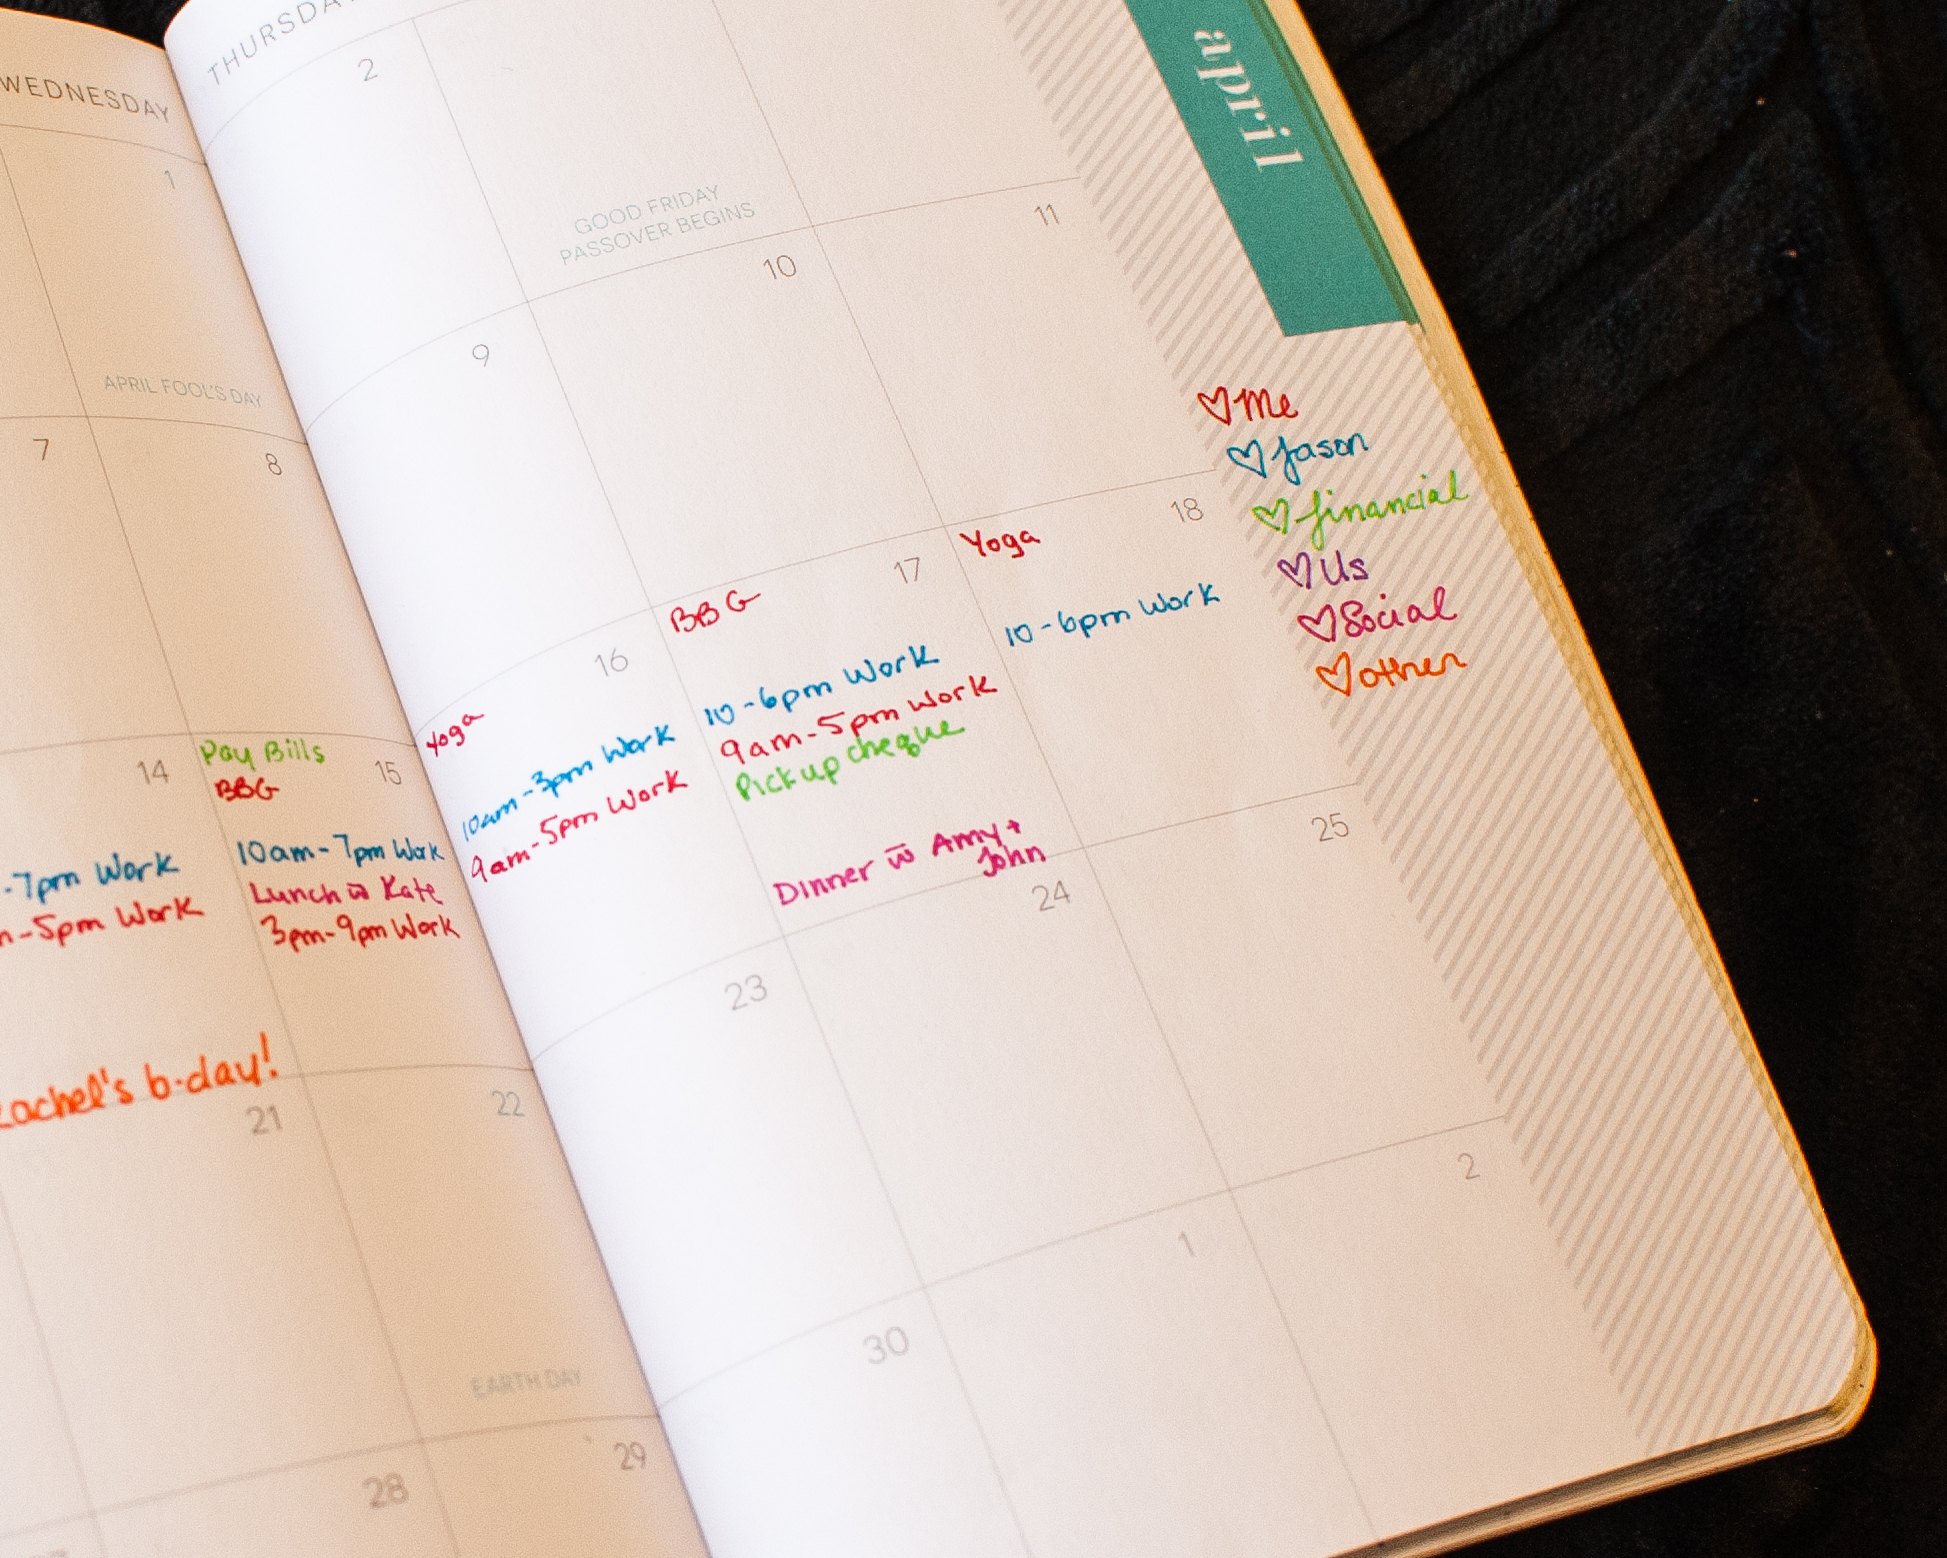 WEDNESDAY
1
APRIL FOOL'S DAY
7
8
14
-7pm Work
-5pm Work
b-day!
Pay Bills
15
BBG
10am-7pm Work
Lunch w̄ Kate
3pm-9pm Work
21
22
EARTH DAY
28
29
2
GOOD FRIDAY
PASSOVER BEGINS
9
10
11
16
Yoga
10am-3pm Work
9am-5pm Work
17
BBG
10-6pm Work
9am-5pm Work
Pick up cheque
Dinner w̄ Amy+
John
18
Yoga
10-6pm Work
23
24
25
30
1
2
april
♡Me
♡Jason
♡financial
♡Us
♡Social
♡other